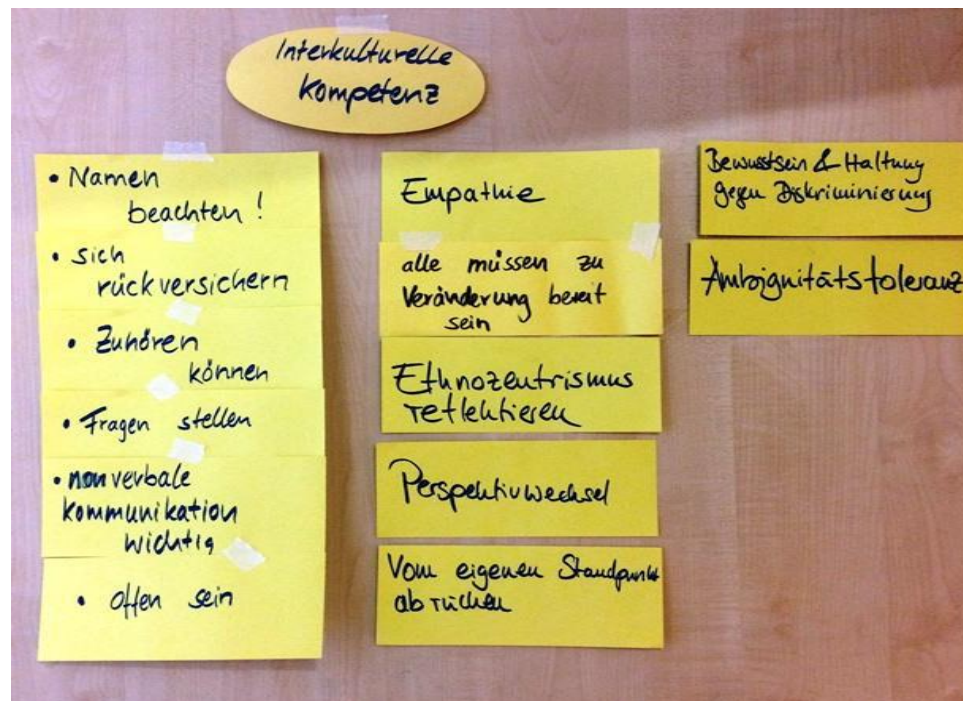 Interkulturelle
Kompetenz
• Namen
beachten !
• sich
rückversichern
• Zuhören
können
• Fragen stellen
• nonverbale
kommunikation
wichtig
• offen sein
Empathie
alle müssen zu
Veränderung bereit
sein
Ethnozentrismus
reflektieren
Perspektivwechsel
Vom eigenen Standpunkt
abrücken
Bewusstsein & Haltung
gegen Diskriminierung
Ambiguitätstoleranz